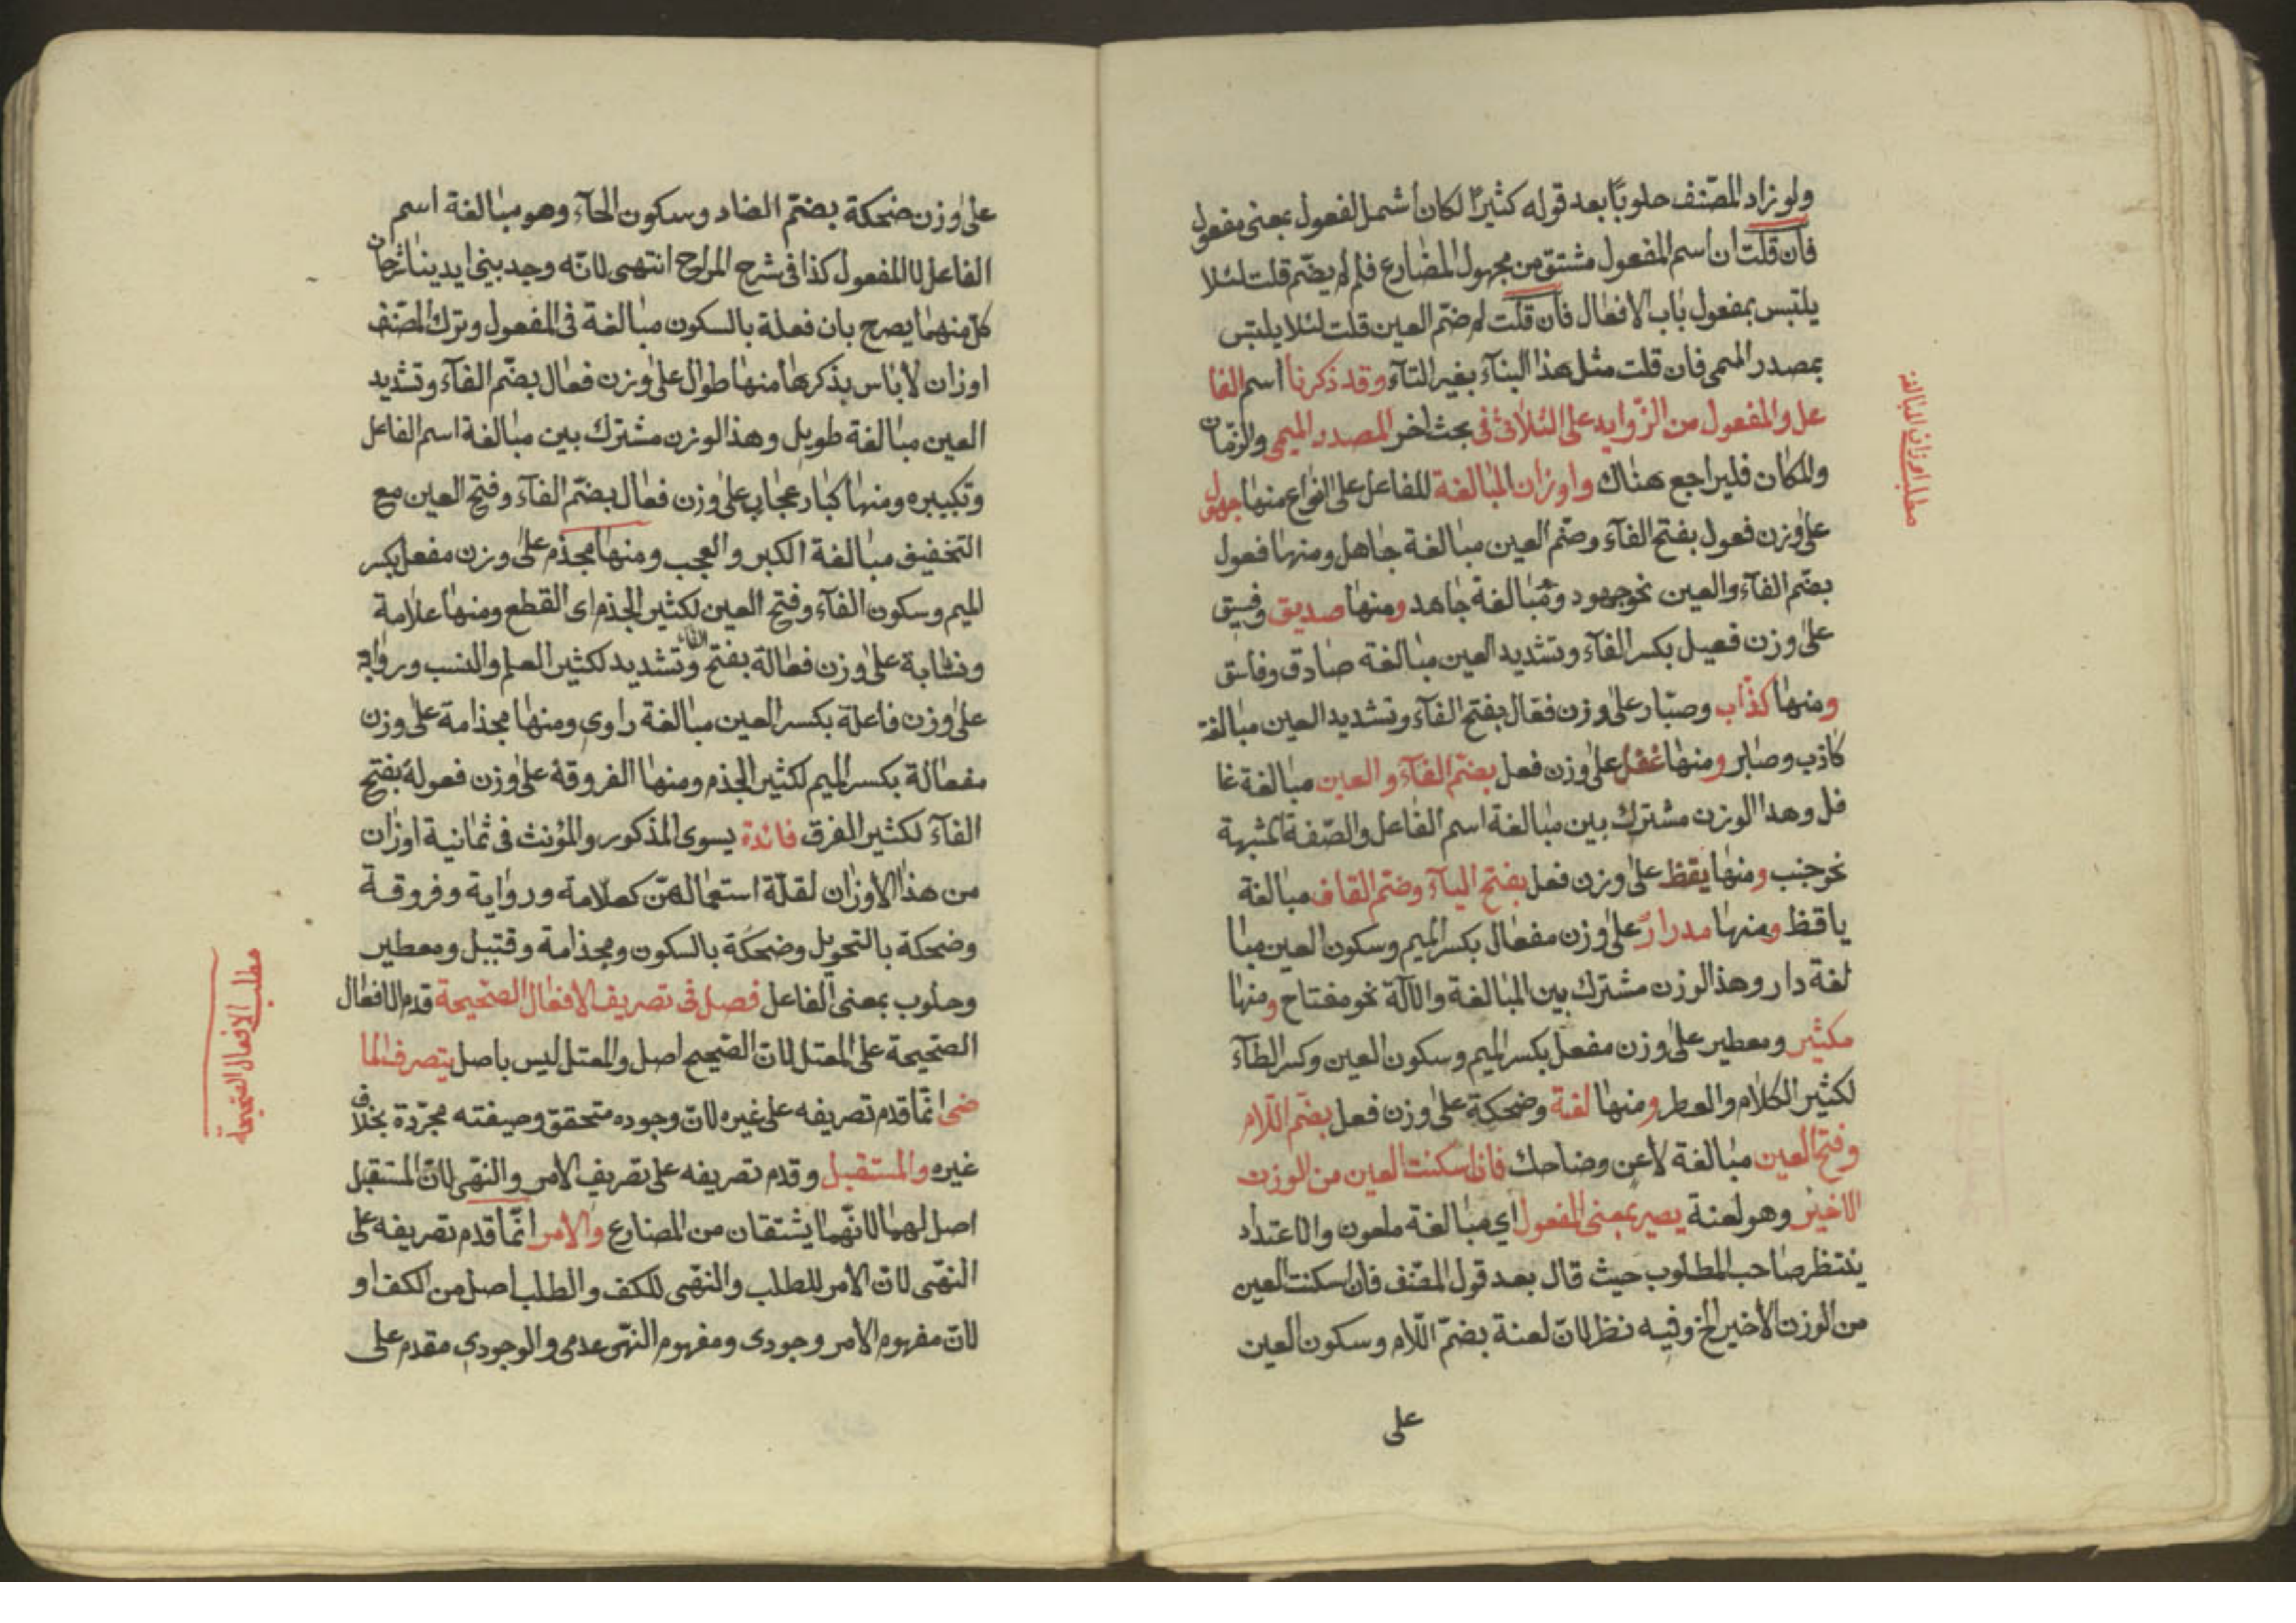 ولو زاد المصنف حلوبًا بعد قوله كثيرًا لكان اشمل لفعول بمعنى مفعول
فان قلت ان اسم المفعول مشتق من مجهول المضارع فلم لم يضم قلت لئلا
يلتبس بمفعول باب الافعال فان قلت لم ضم العين قلت لئلا يلتبس
بمصدر الميمى فان قلت مثل هذا البناء بغير التاء وقد ذكرنا اسم الفا
عل والمفعول من الزوايد على الثلاثى فى بحث اخر المصدر الميمى والزمان
والمكان فليراجع هناك واوزان المبالغة للفاعل على انواع منها جهول
على وزن فعول بفتح الفآء وضم العين مبالغة جاهل ومنها فعول
بضم الفآء والعين نحو جهود ومبالغة جاهد ومنها صديق وفسيق
على وزن فعيل بكسر الفآء وتشديد العين مبالغة صادق وفاسق
ومنها كذّاب وصبّار على وزن فعّال بفتح الفآء وتشديد العين مبالغة
كاذب وصابر ومنها غفل على وزن فعل بضم الفآء والعين مبالغة غا
فل وهذا الوزن مشترك بين مبالغة اسم الفاعل والصّفة المشبهة
نحو جنب ومنها يقظ على وزن فعل بفتح اليآء وضم القاف مبالغة
ياقظ ومنها مدرارٌ على وزن مفعال بكسر الميم وسكون العين مبا
لغة دار وهذا الوزن مشترك بين المبالغة والالة نحو مفتاح ومنها
مكثير ومعطير على وزن مفعل بكسر الميم وسكون العين وكسر الطآء
لكثير الكلام والعطر ومنها لعنة وضحكة على وزن فعل بضم اللّام
وفتح العين مبالغة لاعن وضاحك فان اسكنت العين من الوزن
الاخير وهو لعنة يصير بمعنى المفعول اي مبالغة ملعون والاعتداد
ينتظر صاحب المطلوب حيث قال بعد قول المصنف فان اسكنت العين
من الوزن الأخير الخ وفيه نظر لانّ لعنة بضمّ اللّام وسكون العين
على
مطلب اوزان المبالغة
على وزن ضحكة بضمّ الضاد وسكون الحآء وهو مبالغة اسم
الفاعل لا المفعول كذا فى شرح المراح انتهى لانّه وجد بينى ايدينا شرحان
كل منهما يصرح بان فعلة بالسكون مبالغة فى المفعول وترك المصنف
اوزان لا باس بذكرها منها طوال على وزن فعال بضم الفآء وتشديد
العين مبالغة طويل وهذا الوزن مشترك بين مبالغة اسم الفاعل
وتكبيره ومنها كبار عجاب على وزن فعال بضم الفآء وفتح العين مع
التخفيف مبالغة الكبر والعجب ومنها مجذم على وزن مفعل بكسر
الميم وسكون الفآء وفتح العين لكثير الجذم اى القطع ومنها علامة
ونسّابة على وزن فعالة بفتح الفاء وتشديد لكثير العلم والنسب ورواية
على وزن فاعلة بكسر العين مبالغة راوى ومنها مجذامة على وزن
مفعالة بكسر الميم لكثير الجذم ومنها الفروقة على وزن فعولة بفتح
الفآء لكثير المفرق فائدة يسوى المذكور والمؤنث فى ثمانية اوزان
من هذا الأوزان لقلّة استعمالهن كعلّامة ورواية وفروقة
وضحكة بالتحويل وضحكة بالسكون ومجذامة وقتيل ومعطير
وحلوب بمعنى الفاعل فصل فى تصريف الافعال الصّحيحة قدم الافعال
الصّحيحة على المعتل لانّ الصّحيح اصل والمعتل ليس باصل يتصرف الما
ضى انّما قدم تصريفه على غيره لانّ وجوده متحقق وصيغته مجرّدة بخلاف
غيره والمستقبل وقدم تصريفه على تصريف الامر والنّهى لانّ المستقبل
اصل لهما لانّهما يشتقان من المضارع والامر انّما قدم تصريفه على
النهى لانّ الامر للطلب والنهى للكف والطلب اصل من الكف او
لانّ مفهوم الامر وجودى ومفهوم النّهى عدمى والوجودى مقدم على
مطلب الافعال الصحيحة